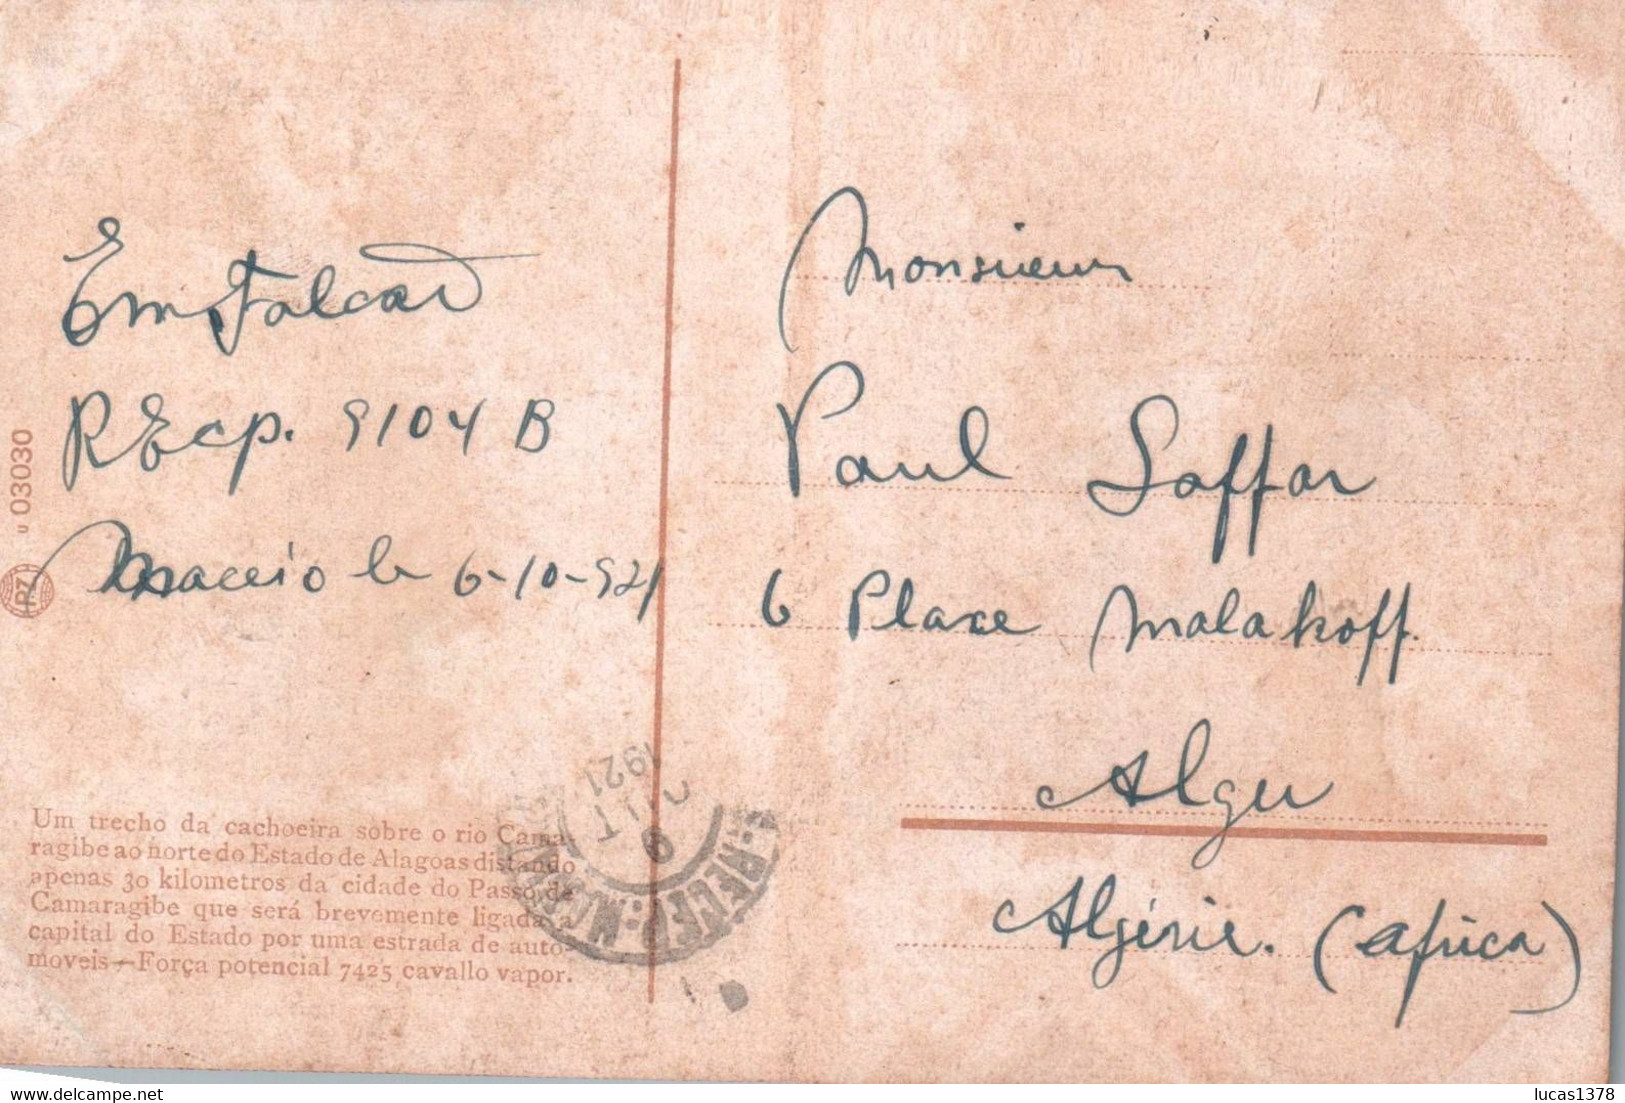 Em Falcaõ
REcp. 9104 B
Maceio le 6-10-921
u 03030
PZ
Um trecho da cachoeira sobre o rio Cama-
ragibe ao norte do Estado de Alagoas distando
apenas 30 kilometros da cidade do Passo de
Camaragibe que será brevemente ligada a
capital do Estado por uma estrada de auto-
moveis—Força potencial 7425 cavallo vapor.
9 OUT
1921
Monsieur
Paul Saffar
6 Place Malakoff.
Alger
Algérie. (Africa)
lucas1378